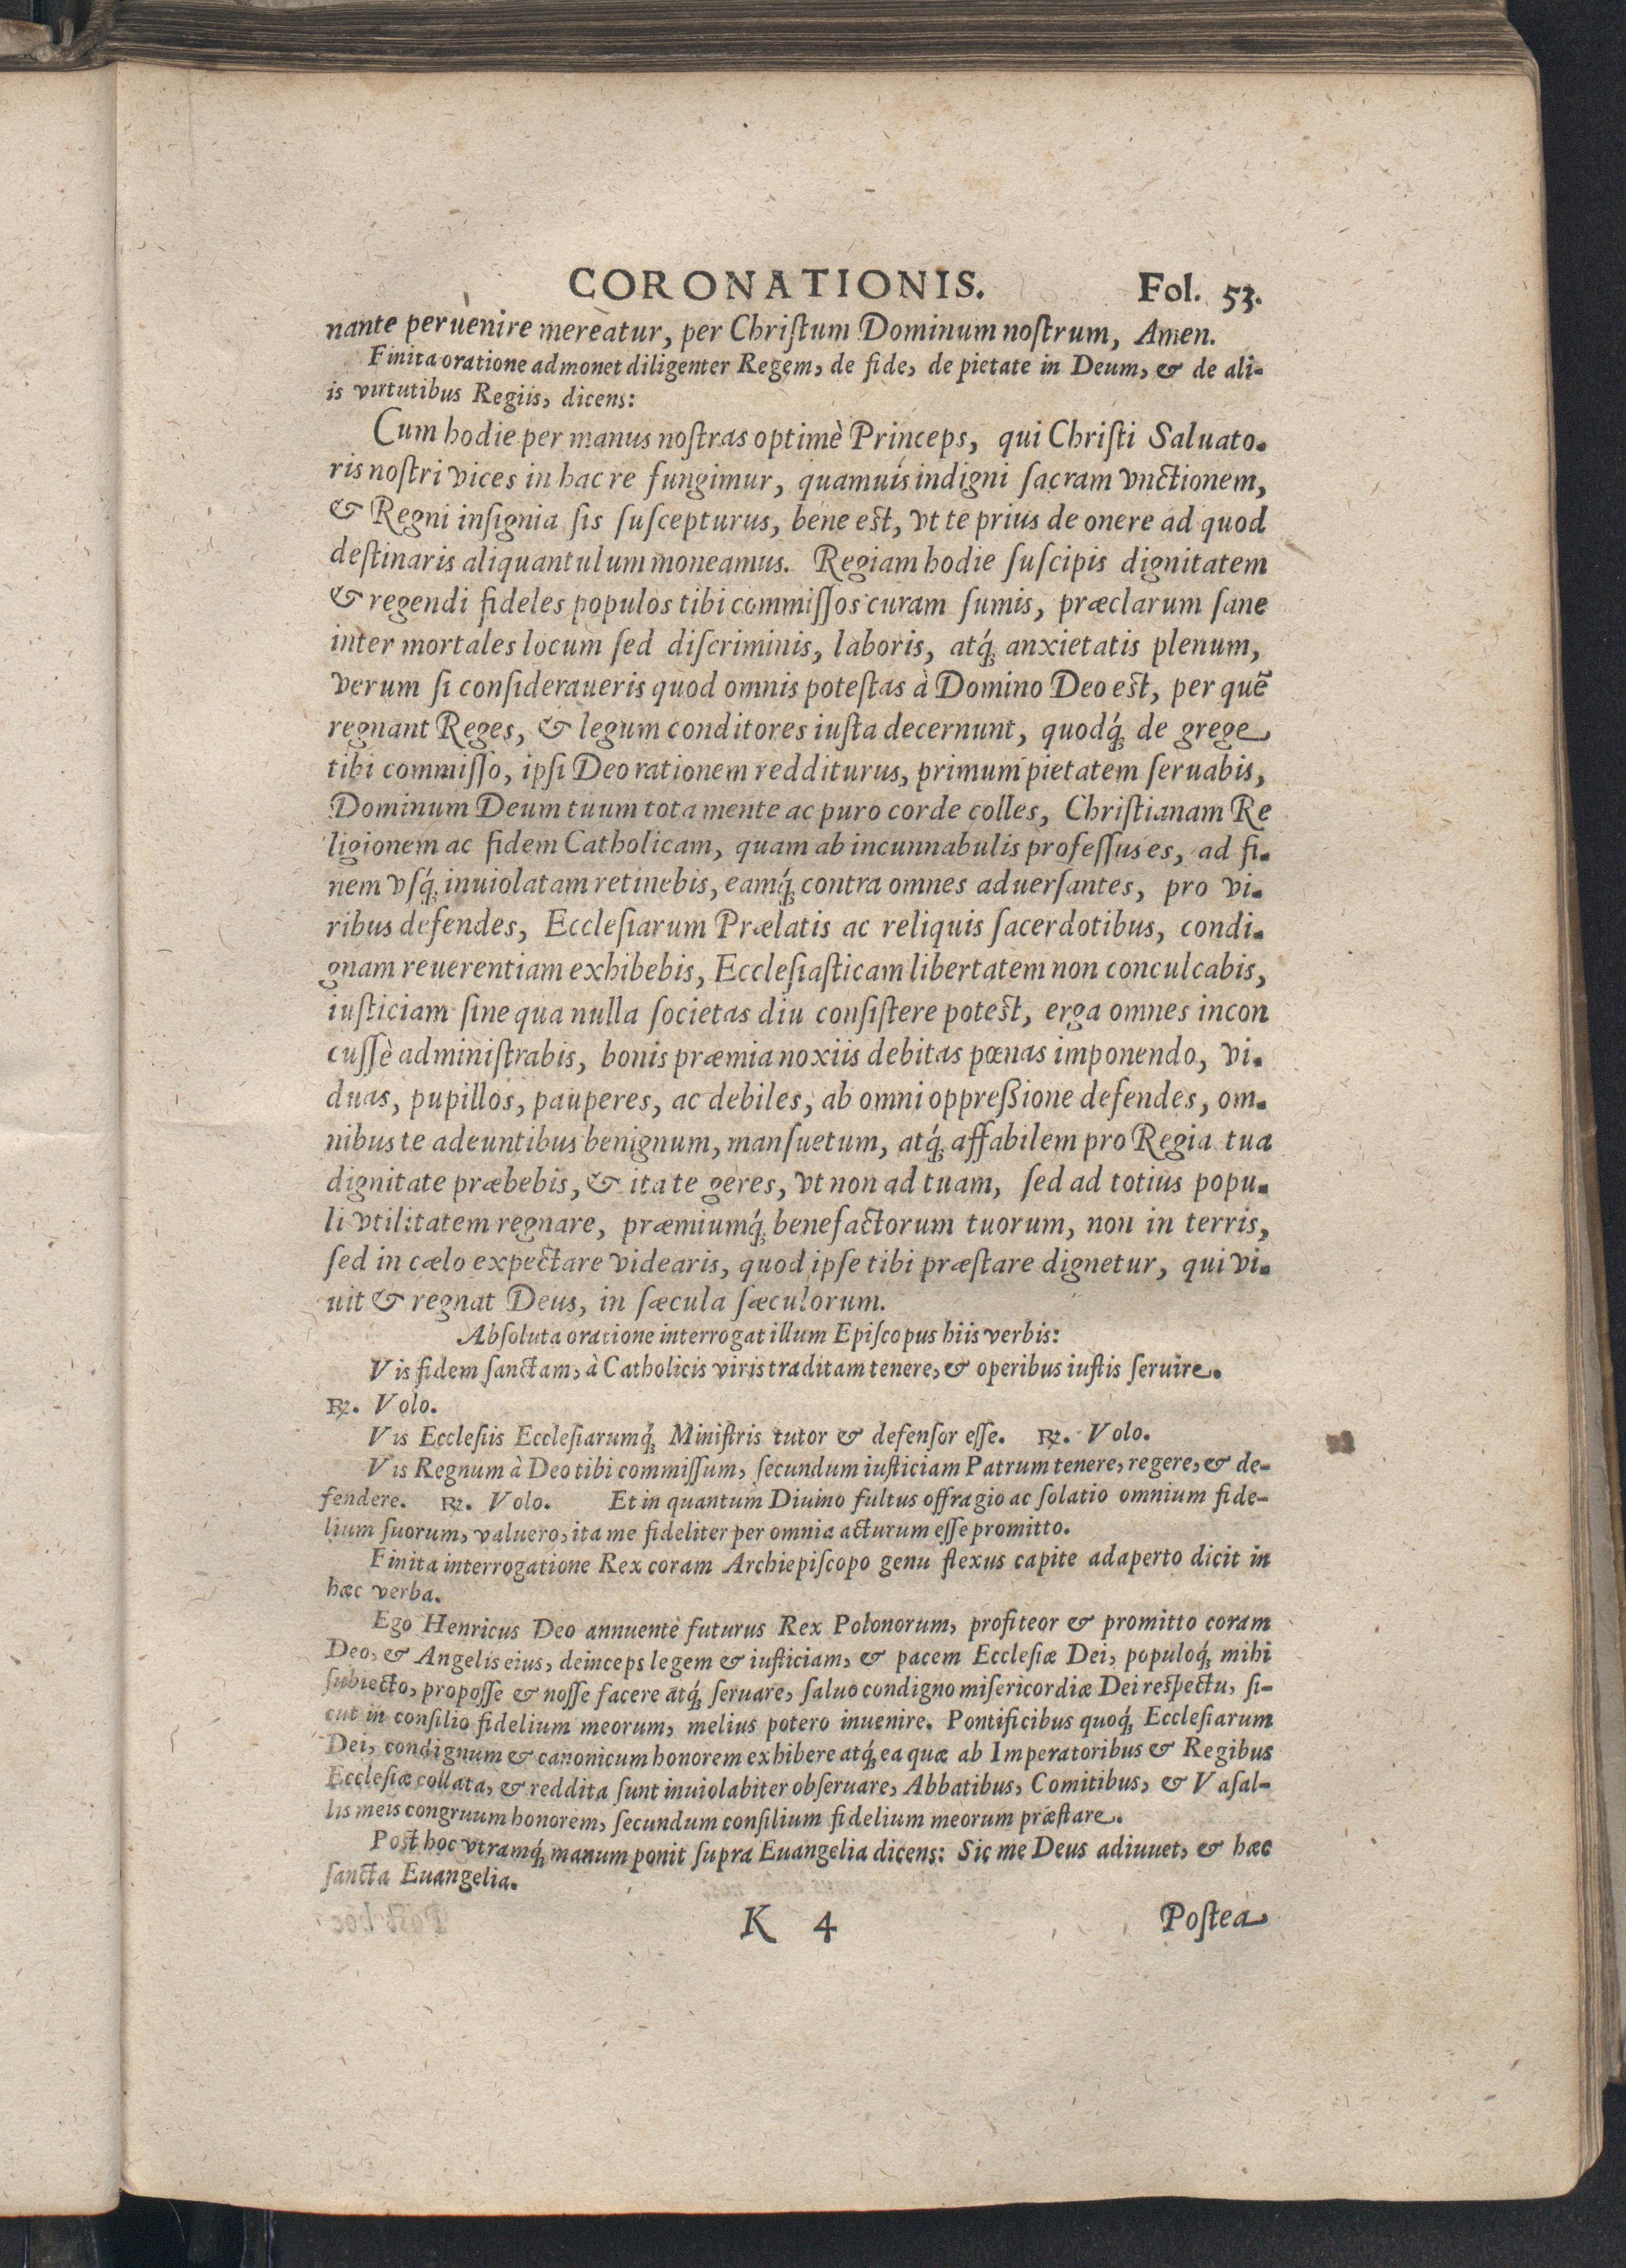 CORONATIONIS. Fol. 53.
nante peruenire mereatur, per Chriſtum Dominum noſtrum, Amen.
Finita oratione admonet diligenter Regem, de fide, de pietate in Deum, & de ali-
is virtutibus Regiis, dicens:
Cum hodie per manus noſtras optimè Princeps, qui Chriſti Saluato-
ris noſtri vices in hac re fungimur, quamuis indigni ſacram vnctionem,
& Regni inſignia ſis ſuſcepturus, bene est, vt te prius de onere ad quod
deſtinaris aliquantulum moneamus. Regiam hodie ſuſcipis dignitatem
& regendi fideles populos tibi commiſſos curam ſumis, præclarum ſane
inter mortales locum ſed diſcriminis, laboris, atq́; anxietatis plenum,
verum ſi conſideraueris quod omnis poteſtas à Domino Deo est, per quē
regnant Reges, & legum conditores iuſta decernunt, quodq́; de grege
tibi commiſſo, ipſi Deo rationem redditurus, primum pietatem ſeruabis,
Dominum Deum tuum tota mente ac puro corde colles, Chriſtianam Re
ligionem ac fidem Catholicam, quam ab incunnabulis profeſſus es, ad fi-
nem vſq́; inuiolatam retinebis, eamq́; contra omnes aduerſantes, pro vi-
ribus defendes, Eccleſiarum Prælatis ac reliquis ſacerdotibus, condi-
gnam reuerentiam exhibebis, Eccleſiaſticam libertatem non conculcabis,
iuſticiam ſine qua nulla ſocietas diu conſiſtere potest, erga omnes incon
cuſſè adminiſtrabis, bonis præmia noxiis debitas pœnas imponendo, vi-
duas, pupillos, pauperes, ac debiles, ab omni oppreßione defendes, om-
nibus te adeuntibus benignum, manſuetum, atq́; affabilem pro Regia tua
dignitate præbebis, & ita te geres, vt non ad tuam, ſed ad totius popu-
li vtilitatem regnare, præmiumq́; benefactorum tuorum, non in terris,
ſed in cælo expectare videaris, quod ipſe tibi præſtare dignetur, qui vi-
uit & regnat Deus, in ſæcula ſæculorum.
Abſoluta oratione interrogat illum Epiſcopus hiis verbis:
Vis fidem ſanctam, à Catholicis viris traditam tenere, & operibus iuſtis ſeruire.
℞. Volo.
Vis Eccleſiis Eccleſiarumq́; Miniſtris tutor & defenſor eſſe. ℞. Volo.
Vis Regnum à Deo tibi commiſſum, ſecundum iuſticiam Patrum tenere, regere, & de-
fendere. ℞. Volo. Et in quantum Diuino fultus offragio ac ſolatio omnium fide-
lium ſuorum, valuero, ita me fideliter per omnia acturum eſſe promitto.
Finita interrogatione Rex coram Archiepiſcopo genu flexus capite adaperto dicit in
hæc verba.
Ego Henricus Deo annuente futurus Rex Polonorum, profiteor & promitto coram
Deo, & Angelis eius, deinceps legem & iuſticiam, & pacem Eccleſiæ Dei, populoq́; mihi
ſubiecto, propoſſe & noſſe facere atq́; ſeruare, ſaluo condigno miſericordiæ Dei respectu, ſi-
cut in conſilio fidelium meorum, melius potero inuenire. Pontificibus quoq́; Eccleſiarum
Dei, condignum & canonicum honorem exhibere atq́; ea quæ ab Imperatoribus & Regibus
Eccleſiæ collata, & reddita ſunt inuiolabiter obſeruare, Abbatibus, Comitibus, & Vaſal-
lis meis congruum honorem, ſecundum conſilium fidelium meorum præſtare.
Post hoc vtramq́; manum ponit ſupra Euangelia dicens: Sic me Deus adiuuet, & hæc
ſancta Euangelia.
K 4 Poſtea